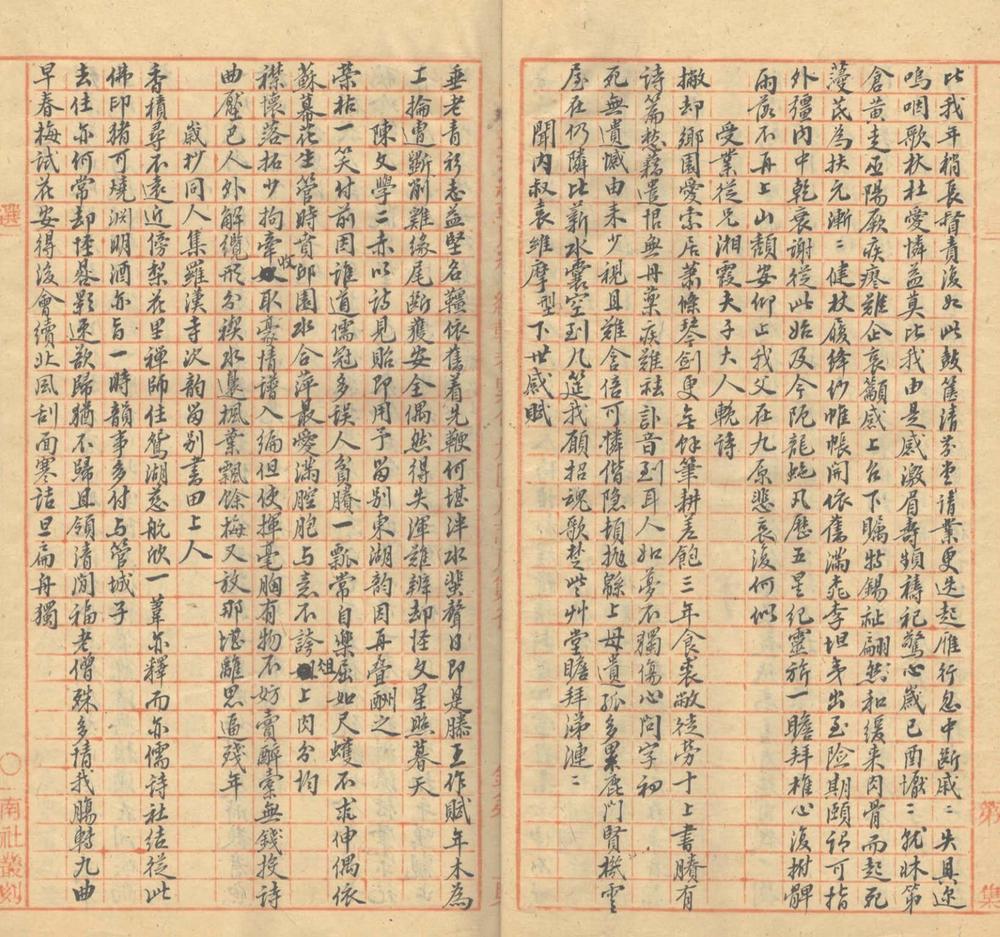 比我年稍長督責復如此鼓篋清芬堂請業更迭起雁行忽中斷戚二失具邇
嗚咽歌杕杜愛憐益莫比我由是感激眉壽頻禱祀驚心歲己酉壏二就牀第
倉黃走巫陽厥疾瘳難企哀籲感上台下矚特錫祉翩然和緩來肉骨而起死
蓡茋為扶元漸二健杖履絳紗帷帳開依舊滿桃李坦夷出至險期頤謂可指
外彊內中乾衰謝從此始及今阨龍虵凡歷五星紀靈旂一瞻拜椎心復拊髀
兩落不再上山頹安仰止我父在九原悲哀復何似
受業從兄湘霞夫子大人輓詩
撇却鄉園愛索居蕭條琴劍更無餘筆耕差飽三年食裘敝徒勞十上書賸有
詩篇愁藉遣恨無丹藥疾難祛訃音到耳人如夢不獨傷心問字初
死無遺憾由來少視且難含倍可憐偕隱頓拋緜上母遺孤多累鹿門賢機雲
屋在仍隣比薪水囊空到几筵我願招魂歌楚些艸堂瞻拜涕漣二
聞內叔袁維摩型下世感賦
垂老青衫志益堅名韁依舊着先鞭何堪泮水蜚聲日即是滕王作賦年木為
工掄遭斲削雞緣尾斷獲安全偶然得失渾難辨却怪文星照暮天
陳文學二赤以詩見貽即用予留別東湖韵因再疊酬之
榮枯一笑付前因誰道儒冠多誤人貧賸一瓢常自樂屈如尺蠖不求伸偶依
蘇幕花生管時賁邱園水合萍最愛滿腔胞与意不誇俎上肉分均
襟懷落拓少拘牽收取豪情譜入編但使揮毫胸有物不妨賣醉索無錢投詩
曲壓巴人外解纜形分禊水邊楓葉飄餘梅又放那堪離思逼殘年
歲抄同人集羅漢寺次韵留別書田上人
香積尋不遠近傍梨花里禪師住鴛湖慈航欣一葦亦釋而亦儒詩社結從此
佛印豬可燒淵明酒亦旨一時韻事多付与管城子
去住亦何常却悽晷影速欲歸猶不歸且領清閒福老僧殊多情我腸轉九曲
早春梅試花安得後會續北風刮面寒詰旦扁舟獨
選
南社叢刻
第
集